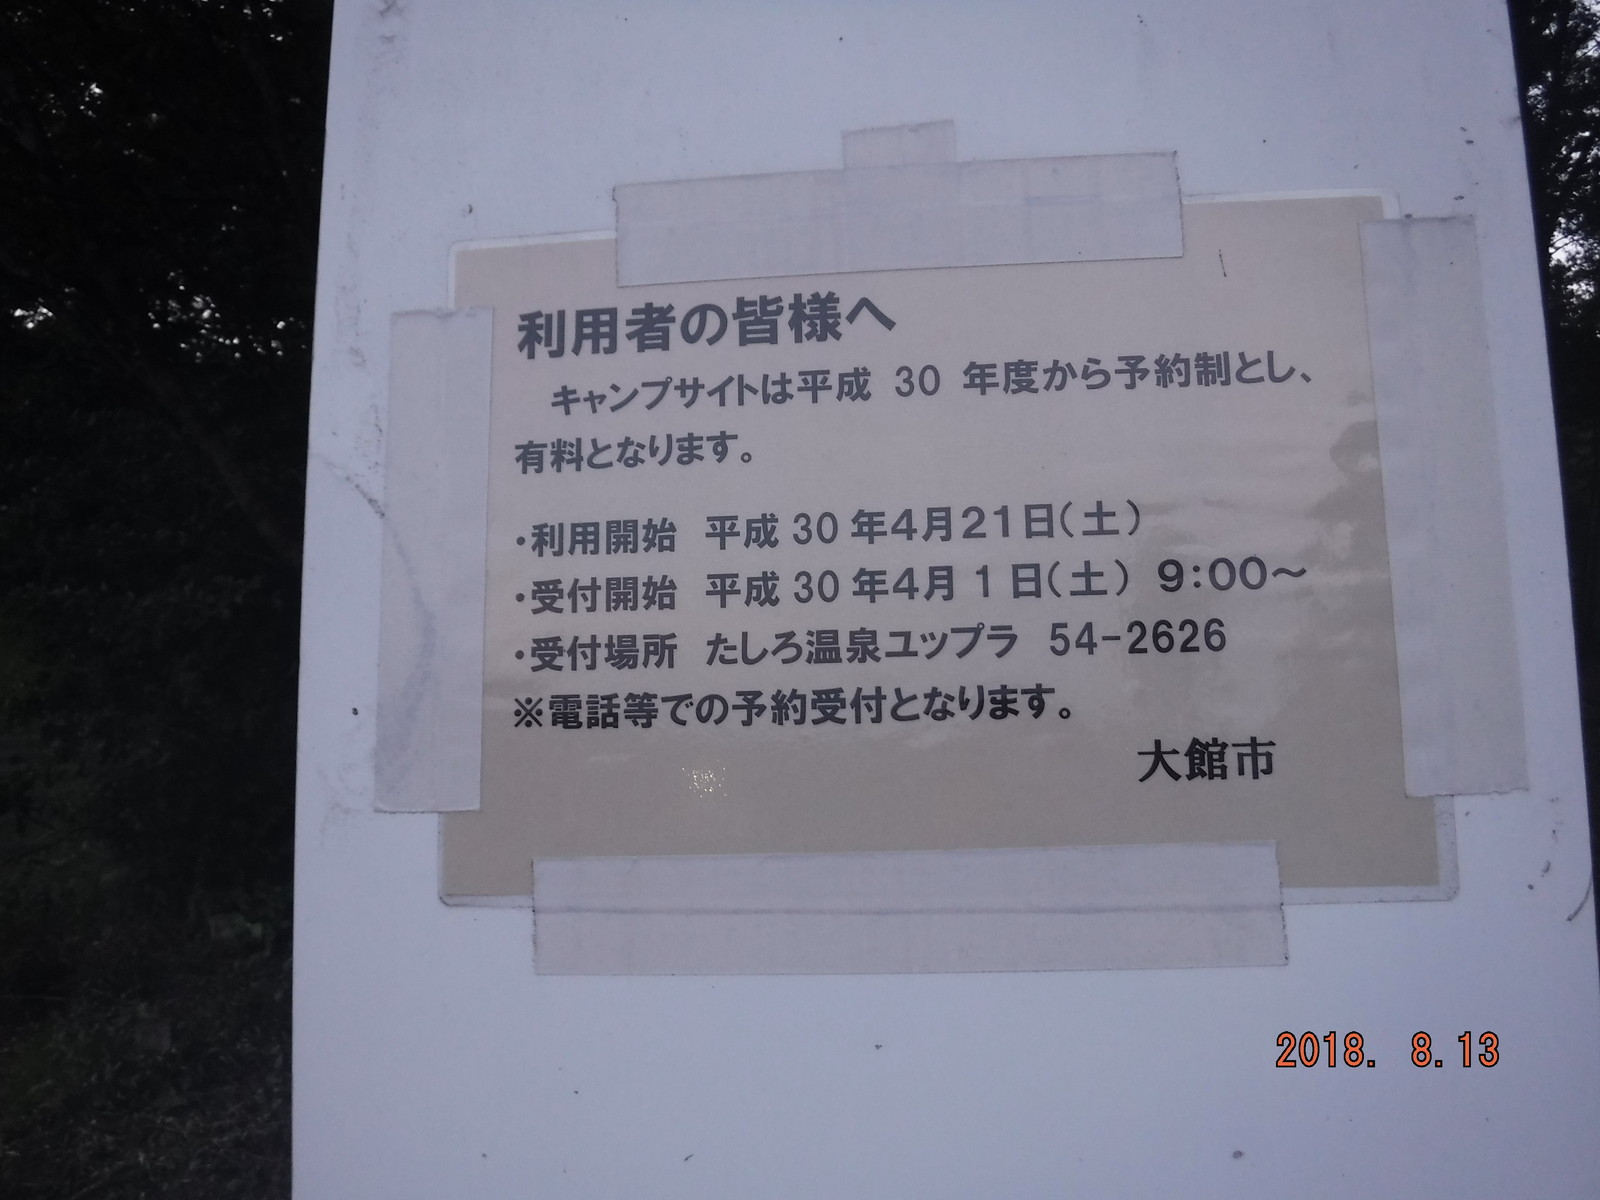 利用者の皆様へ
キャンプサイトは平成 30 年度から予約制とし、
有料となります。
・利用開始 平成 30 年4月21日(土)
・受付開始 平成 30 年4月 1 日(土) 9:00～
・受付場所 たしろ温泉ユップラ 54-2626
※電話等での予約受付となります。
大館市
2018. 8.13